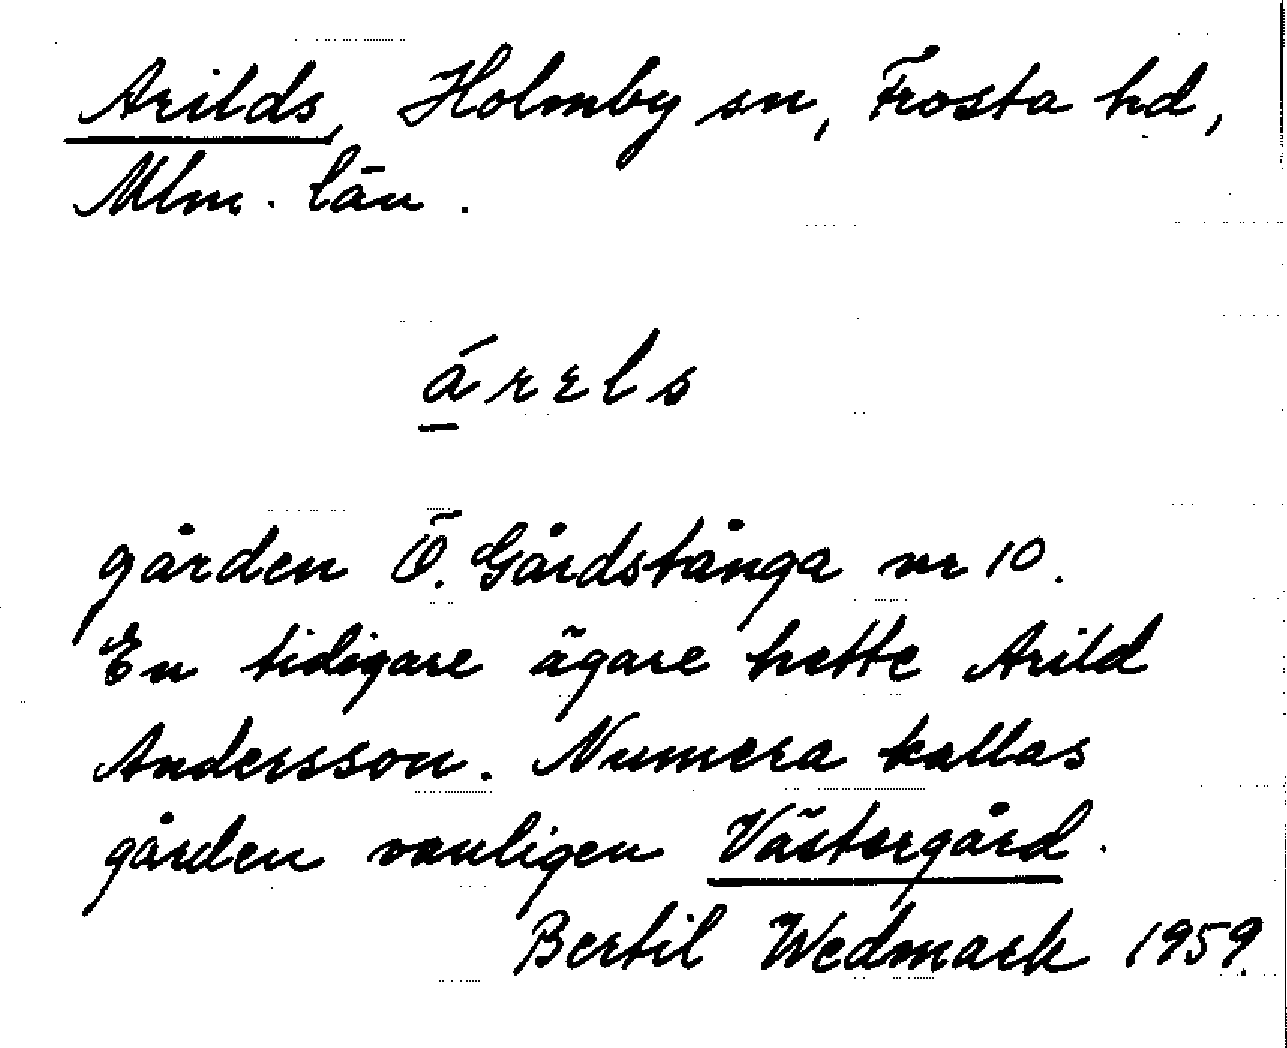 Arilds, Holmby sn, Frosta hd,
Mlm. län.
árɛls
gården Ö. Gårdstånga nr 10.
En tidigare ägare hette Arild
Andersson. Numera kallas
gården vanligen Västergård.
Bertil Wedmark 1959.